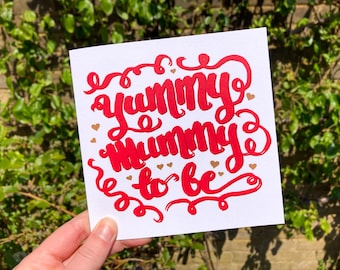 yummy
mummy
to be